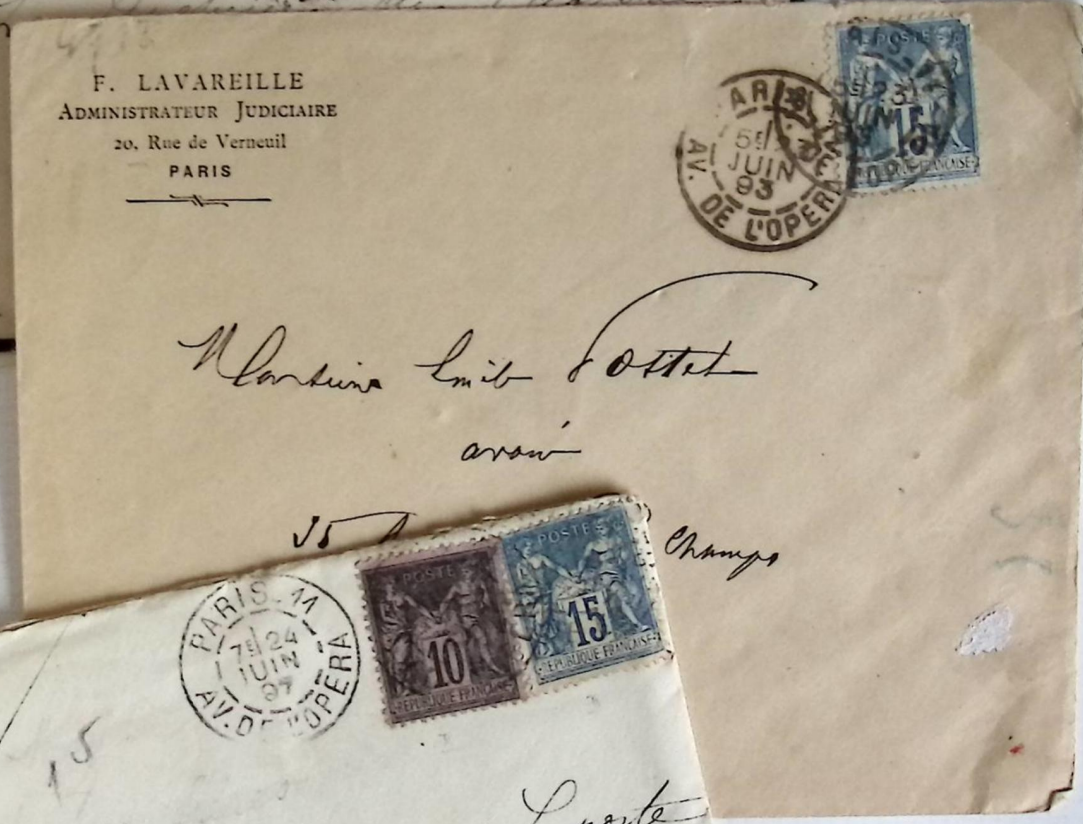 F. LAVAREILLE
ADMINISTRATEUR JUDICIAIRE
20, Rue de Verneuil
PARIS
PARIS
5E/
JUIN
93
AV. DE L'OPERA
POSTES
23
JUIN
15
REPUBLIQUE FRANÇAISE
Monsieur Emile Postel
avoué
35
Champs
PARIS_11
7E/24
JUIN
97
AV. DE L'OPERA
POSTES
10
REPUBLIQUE FRANÇAISE
POSTES
15
REPUBLIQUE FRANÇAISE
15